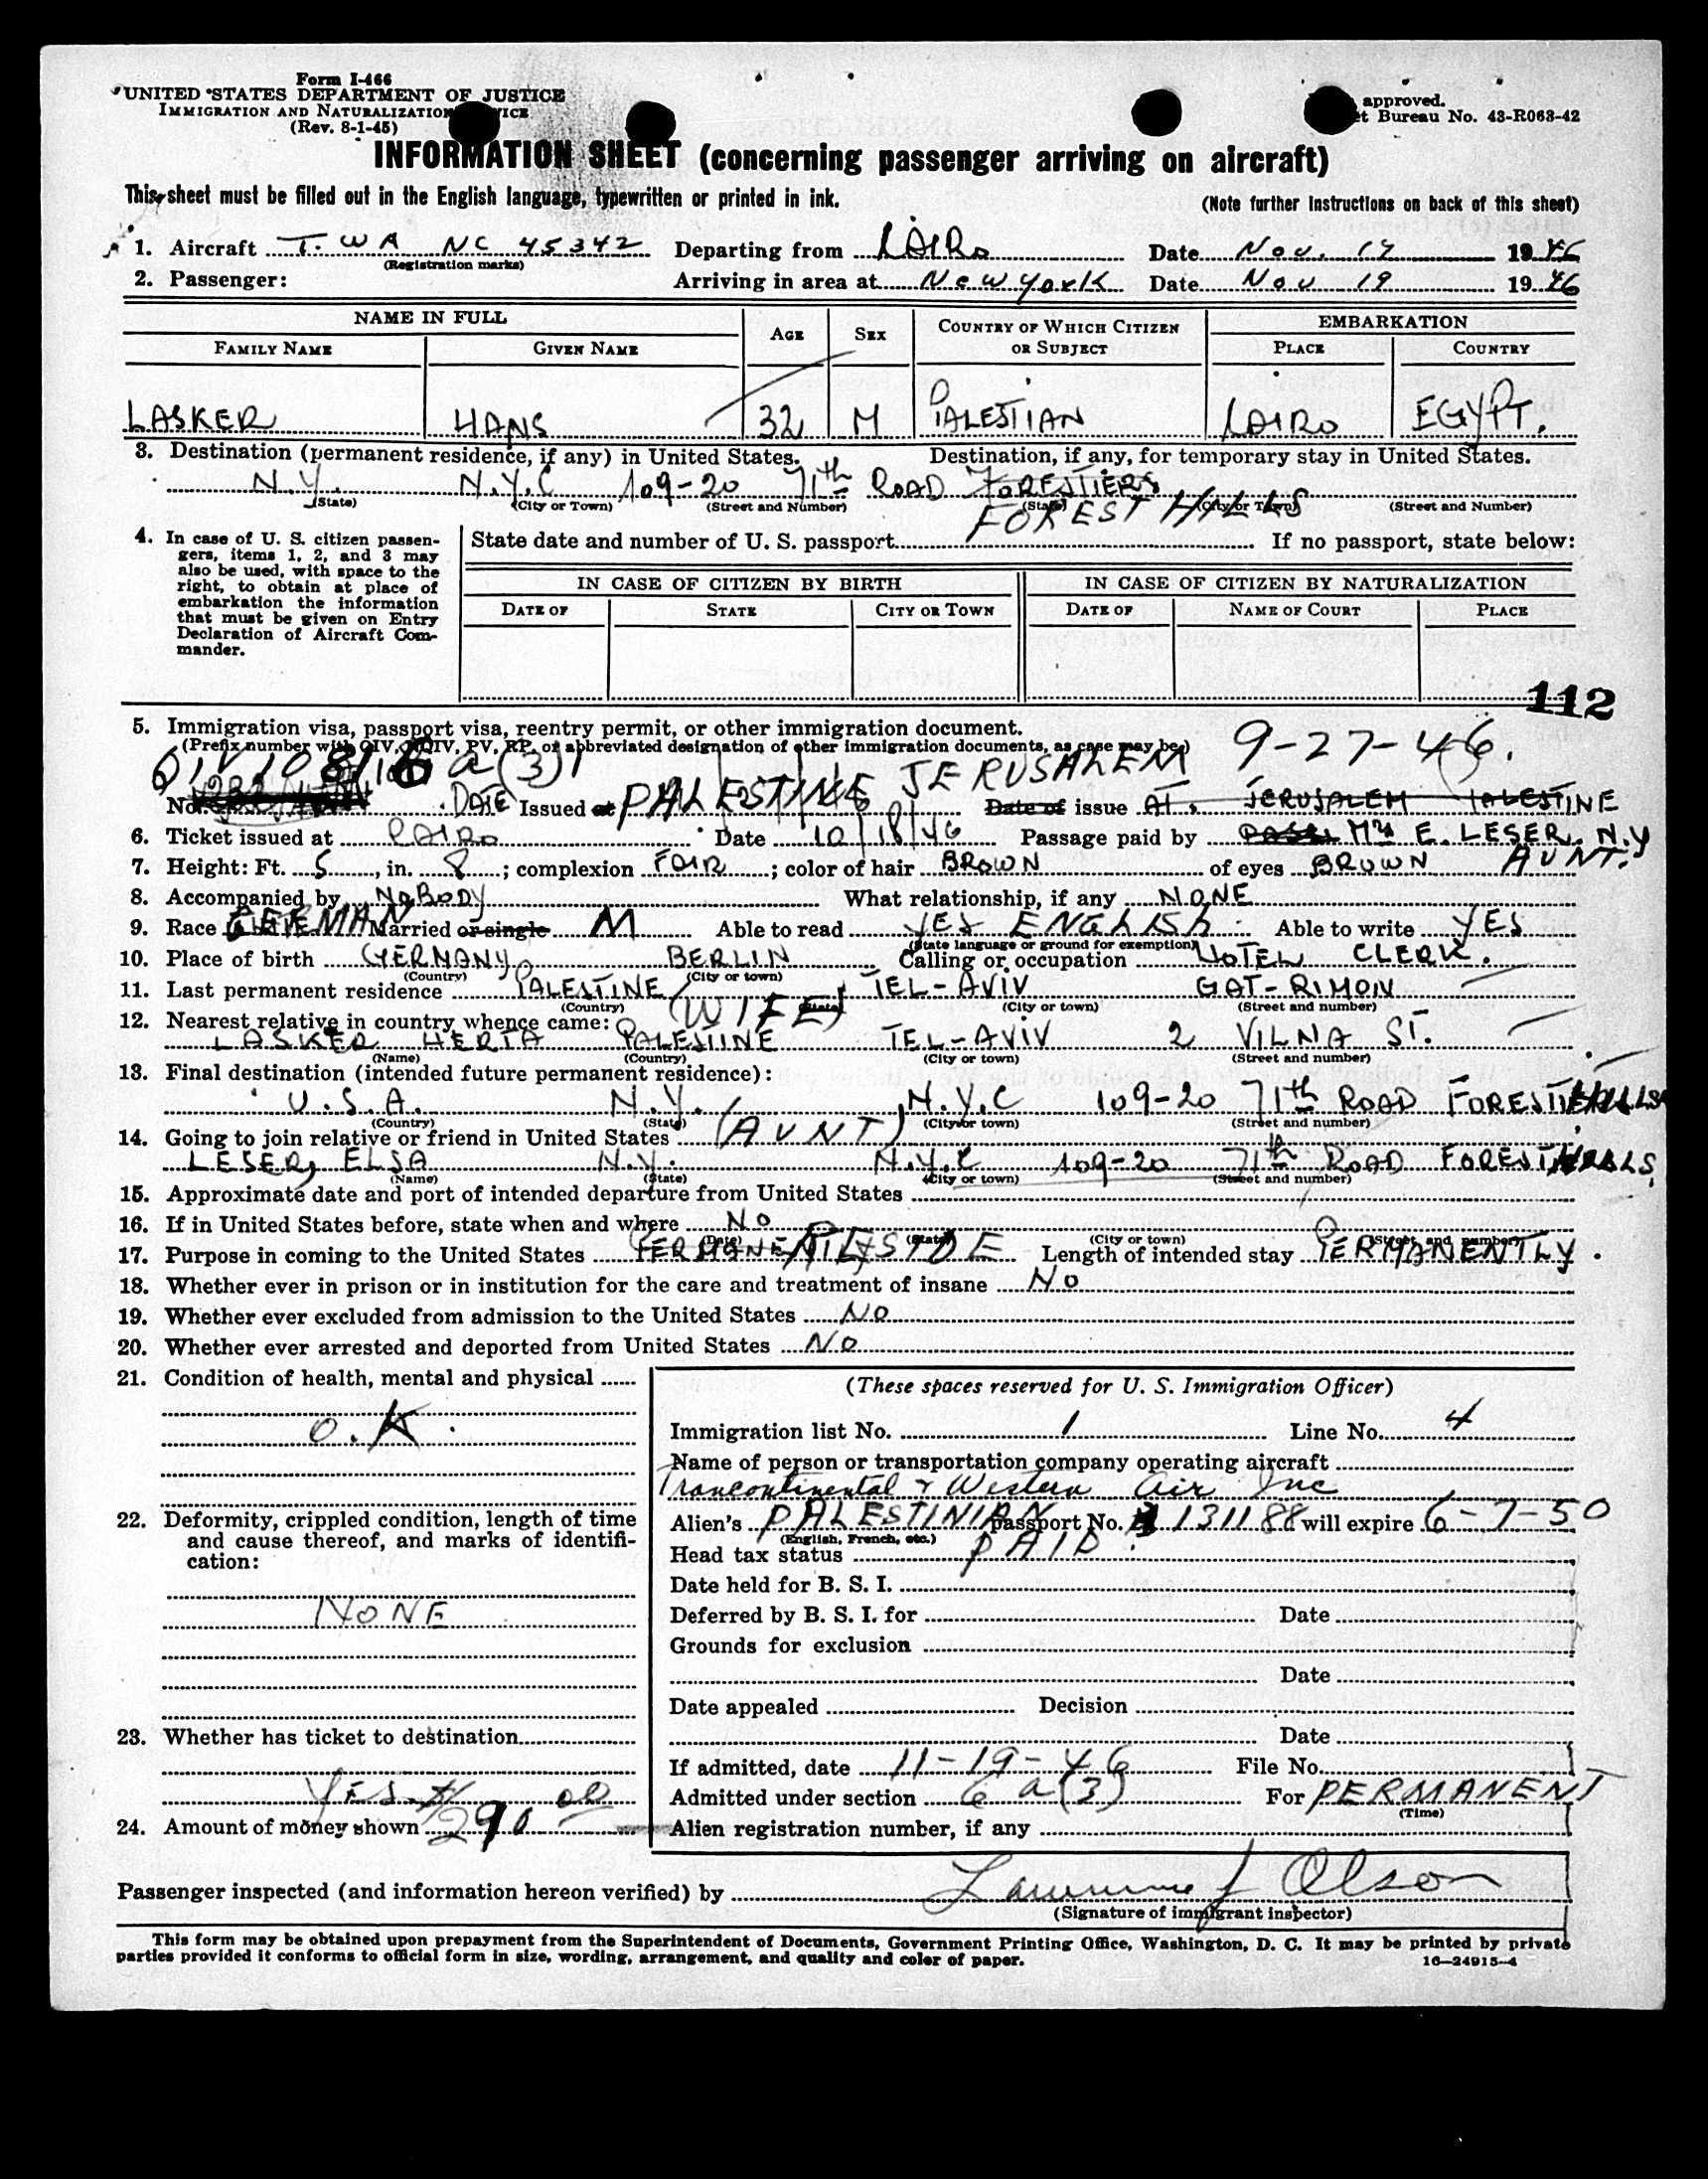 Form I-466
UNITED STATES DEPARTMENT OF JUSTICE
IMMIGRATION AND NATURALIZATION
(Rev. 8-1-45)
approved.
Bureau No. 43-R063-42
INFORMATION SHEET (concerning passenger arriving on aircraft)
This sheet must be filled out in the English language, typewritten or printed in ink.
(Note further instructions on back of this sheet)
1. Aircraft T.W A NC 45342 Departing from CAIRO Date Nov. 17 1946
(Registration marks)
2. Passenger: Arriving in area at New York Date Nov 19 1946
NAME IN FULL AGE SEX COUNTRY OF WHICH CITIZEN OR SUBJECT EMBARKATION
FAMILY NAME GIVEN NAME PLACE COUNTRY
LASKER HANS 32 M PALESTIAN CAIRO EGYPT.
3. Destination (permanent residence, if any) in United States. Destination, if any, for temporary stay in United States.
N.Y. N.Y.C 109-20 71th ROAD FORESTIERS
(State) (City or Town) (Street and Number) (State) (City or Town) (Street and Number)
FOREST HILLS
4. In case of U. S. citizen passengers, items 1, 2, and 3 may also be used, with space to the right, to obtain at place of embarkation the information that must be given on Entry Declaration of Aircraft Commander.
State date and number of U. S. passport If no passport, state below:
IN CASE OF CITIZEN BY BIRTH IN CASE OF CITIZEN BY NATURALIZATION
DATE OF STATE CITY OR TOWN DATE OF NAME OF COURT PLACE
112
5. Immigration visa, passport visa, reentry permit, or other immigration document.
(Prefix number with QIV, NQIV, PV, RP, or abbreviated designation of other immigration documents, as case may be)
QIV 1081 6 a (3) JERUSALEM 9-27-46.
No. DATE Issued at PALESTINE Date of issue AT. JERUSALEM PALESTINE
6. Ticket issued at CAIRO Date 10/18/46 Passage paid by Mrs E. LESER. N.Y
AUNT.
7. Height: Ft. 5, in. 8; complexion FAIR; color of hair BROWN of eyes BROWN
8. Accompanied by NOBODY What relationship, if any NONE
9. Race GERMAN Married or single M Able to read YES ENGLISH Able to write YES
(State language or ground for exemption)
10. Place of birth GERMANY BERLIN Calling or occupation HOTEL CLERK.
(Country) (City or town)
11. Last permanent residence PALESTINE TEL-AVIV GAT-RIMON
(Country) (State) (City or town) (Street and number)
12. Nearest relative in country whence came: (WIFE)
LASKER HERTA PALESTINE TEL-AVIV 2 VILNA ST.
(Name) (Country) (City or town) (Street and number)
13. Final destination (intended future permanent residence):
U.S.A. N.Y. N.Y.C 109-20 71th ROAD FOREST HILLS
(Country) (State) (City or town) (Street and number)
14. Going to join relative or friend in United States (AUNT)
LESER, ELSA N.Y. N.Y.C 109-20 71th ROAD FOREST HILLS
(Name) (State) (City or town) (Street and number)
15. Approximate date and port of intended departure from United States
16. If in United States before, state when and where No
(Date) (State) (City or town) (Street and number)
17. Purpose in coming to the United States RESIDE Length of intended stay PERMANENTLY.
18. Whether ever in prison or in institution for the care and treatment of insane No
19. Whether ever excluded from admission to the United States NO
20. Whether ever arrested and deported from United States NO
21. Condition of health, mental and physical
O.K.
22. Deformity, crippled condition, length of time and cause thereof, and marks of identification:
NONE
23. Whether has ticket to destination
YES.
24. Amount of money shown $290.00
(These spaces reserved for U. S. Immigration Officer)
Immigration list No. 1 Line No. 4
Name of person or transportation company operating aircraft
Transcontinental & Western Air Inc
Alien's PALESTINIAN passport No. 131188 will expire 6-7-50
(English, French, etc.)
Head tax status PAID
Date held for B. S. I.
Deferred by B. S. I. for Date
Grounds for exclusion
Date
Date appealed Decision
Date
If admitted, date 11-19-46 File No.
Admitted under section 6 a (3) For PERMANENT
(Time)
Alien registration number, if any
Passenger inspected (and information hereon verified) by Lawrence J Olson
(Signature of immigrant inspector)
This form may be obtained upon prepayment from the Superintendent of Documents, Government Printing Office, Washington, D. C. It may be printed by private
parties provided it conforms to official form in size, wording, arrangement, and quality and color of paper. 16—24915-4